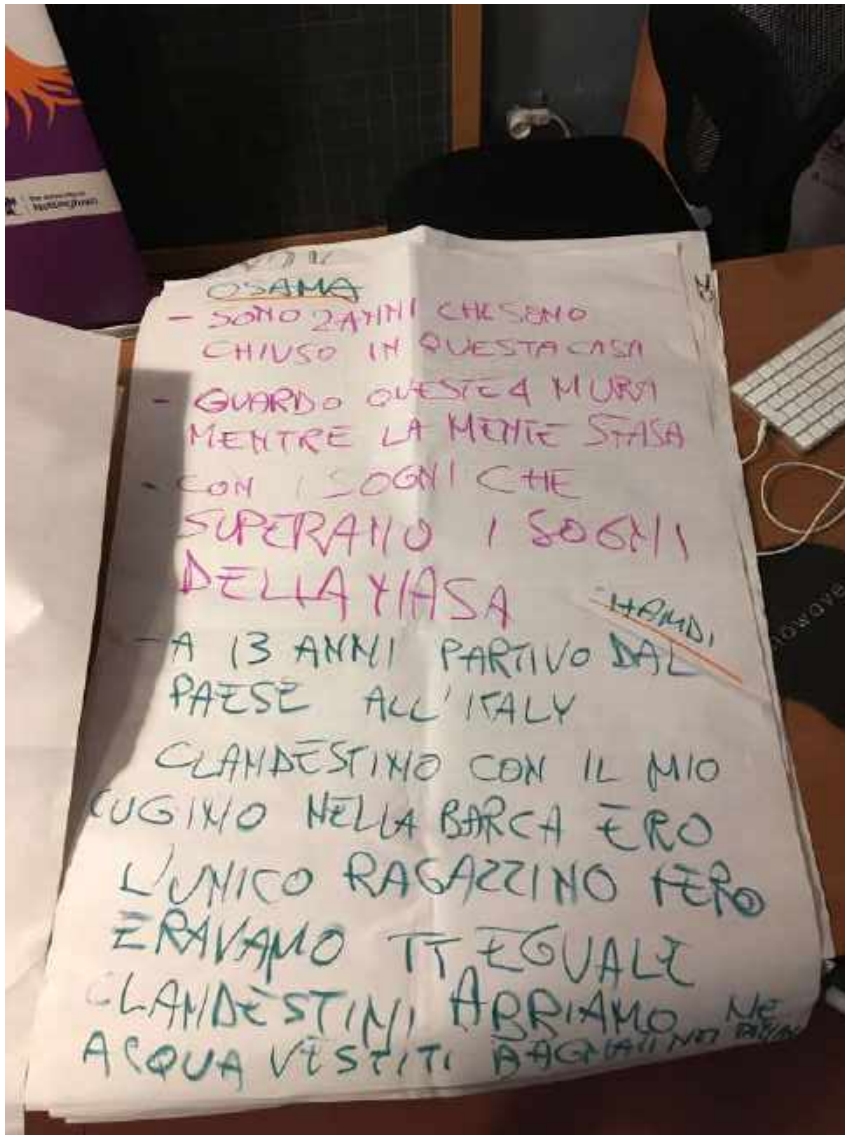 The University of
Nottingham
OSAMA
- SONO 2 ANNI CHE SONO
CHIUSO IN QUESTA CASA
- GUARDO QUESTE 4 MURA
MENTRE LA MENTE STASA
- CON I SOGNI CHE
SUPERANO I SOGNI
DELLA NASA
HAMDI
- A 13 ANNI PARTIVO DAL
PAESE ALL'ITALY
CLANDESTINO CON IL MIO
CUGINO NELLA BARCA ERO
L'UNICO RAGAZZINO PERO
ERAVAMO TT EGUALE
CLANDESTINI ABBIAMO NE
ACQUA VESTITI BAGNATI NEI
nowave